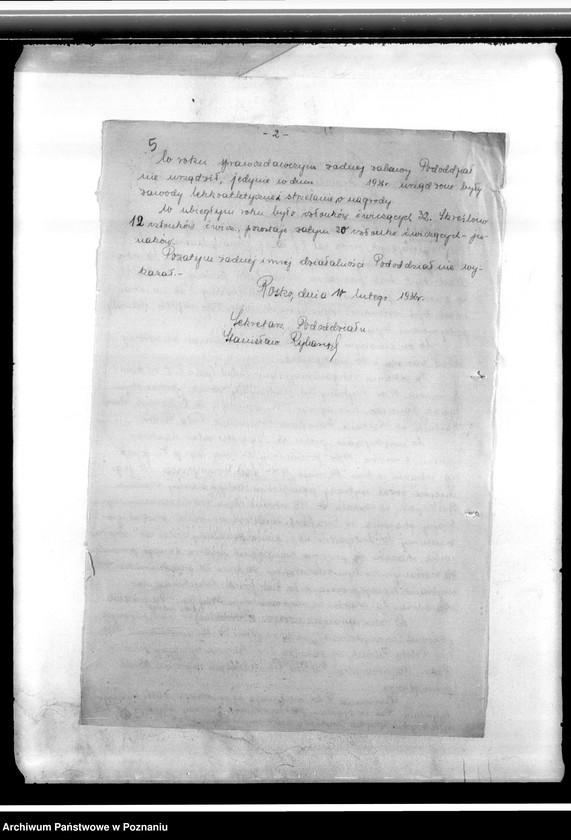 - 2 -
5
W roku sprawozdawczym żadnej zabawy Pododdział
nie urządził, jedynie w dniu 193 r. urządzone były
zawody lekkoatletyczne i strzelanie o nagrody
W ubiegłym roku było członków ćwiczących 32. Skreślono
12 członków ćwicz., pozostaje zatym 20 członków ćwiczących - ju-
naków.
Pozatym żadnej innej działalności Pododdział nie wy-
kazał. -
Rosko, dnia lutego 1936 r.
Sekretarz Pododdziału
Stanisław
Archiwum Państwowe w Poznaniu